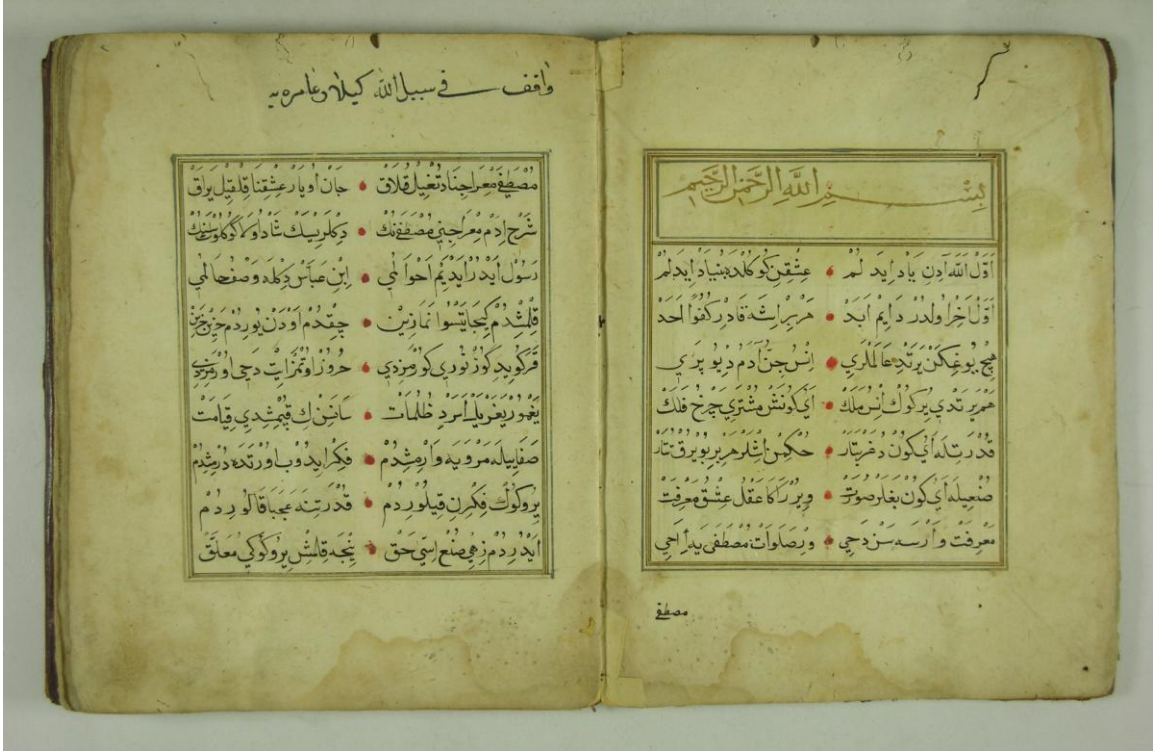 بِسْمِ اللَّهِ الرَّحْمٰنِ الرَّحِيمِ
اول الله آدن ياد ايد لم • عشقن كوكلده بنياد ايد لم
اول اخر اولدر دايم ابد • هر بر اشه قادر كفوا احد
هيچ يوغكن يرتدي عالملري • انس جن آدم ديو پري
هم يرتدي ير كوك انس ملك • اي كونش مشتري چرخ فلك
قدرتله اي كون دغر بتار • حكمن اشلر هر بر
صنعيله اي كون بغلر صورت • ويرر اكا عقل عشق معرفت
معرفت وارسه سن دحي • ور صلوات مصطفى يه اي احي
مصطفى
واقف في سبيل الله
مصطفى معراجنا دتغيل قلاق • جان او يار عشقنا قلقيل يراق
شرح ادم معراجني مصطفى نك • دكلريسك شاد اولا كوكلوك سنك
رسول ايدر ايديم احوالمي • ابن عباس دكله وصف حالمي
قلمشدم كيجا يتسوا نمازين • چقدم اودن يوردم
قركو يدكوز نوري كورمزدي •
يغمور يغر يل اسرد ظلمات • سانسن ك قپمشدي قيامت
صفا ييله مرويه وارمشدم • فكر ايدوب اورتده درمشدم
ير وكوك فكرن قيلوردم • قدرتنه عجبا قالوردم
ايدردم زهي صنع اسي حق • نيجه قلمش ير وكوكي معلق